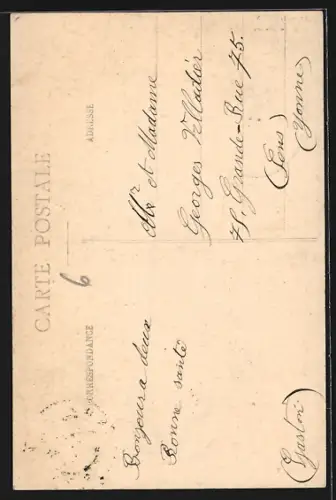 CARTE POSTALE
CORRESPONDANCE
ADRESSE
6
Bonjours a deux
Bonne santé
(Gaston)
Mr et Madame
Georges
75. Grande-Rue 75.
(Sens)
(Yonne)